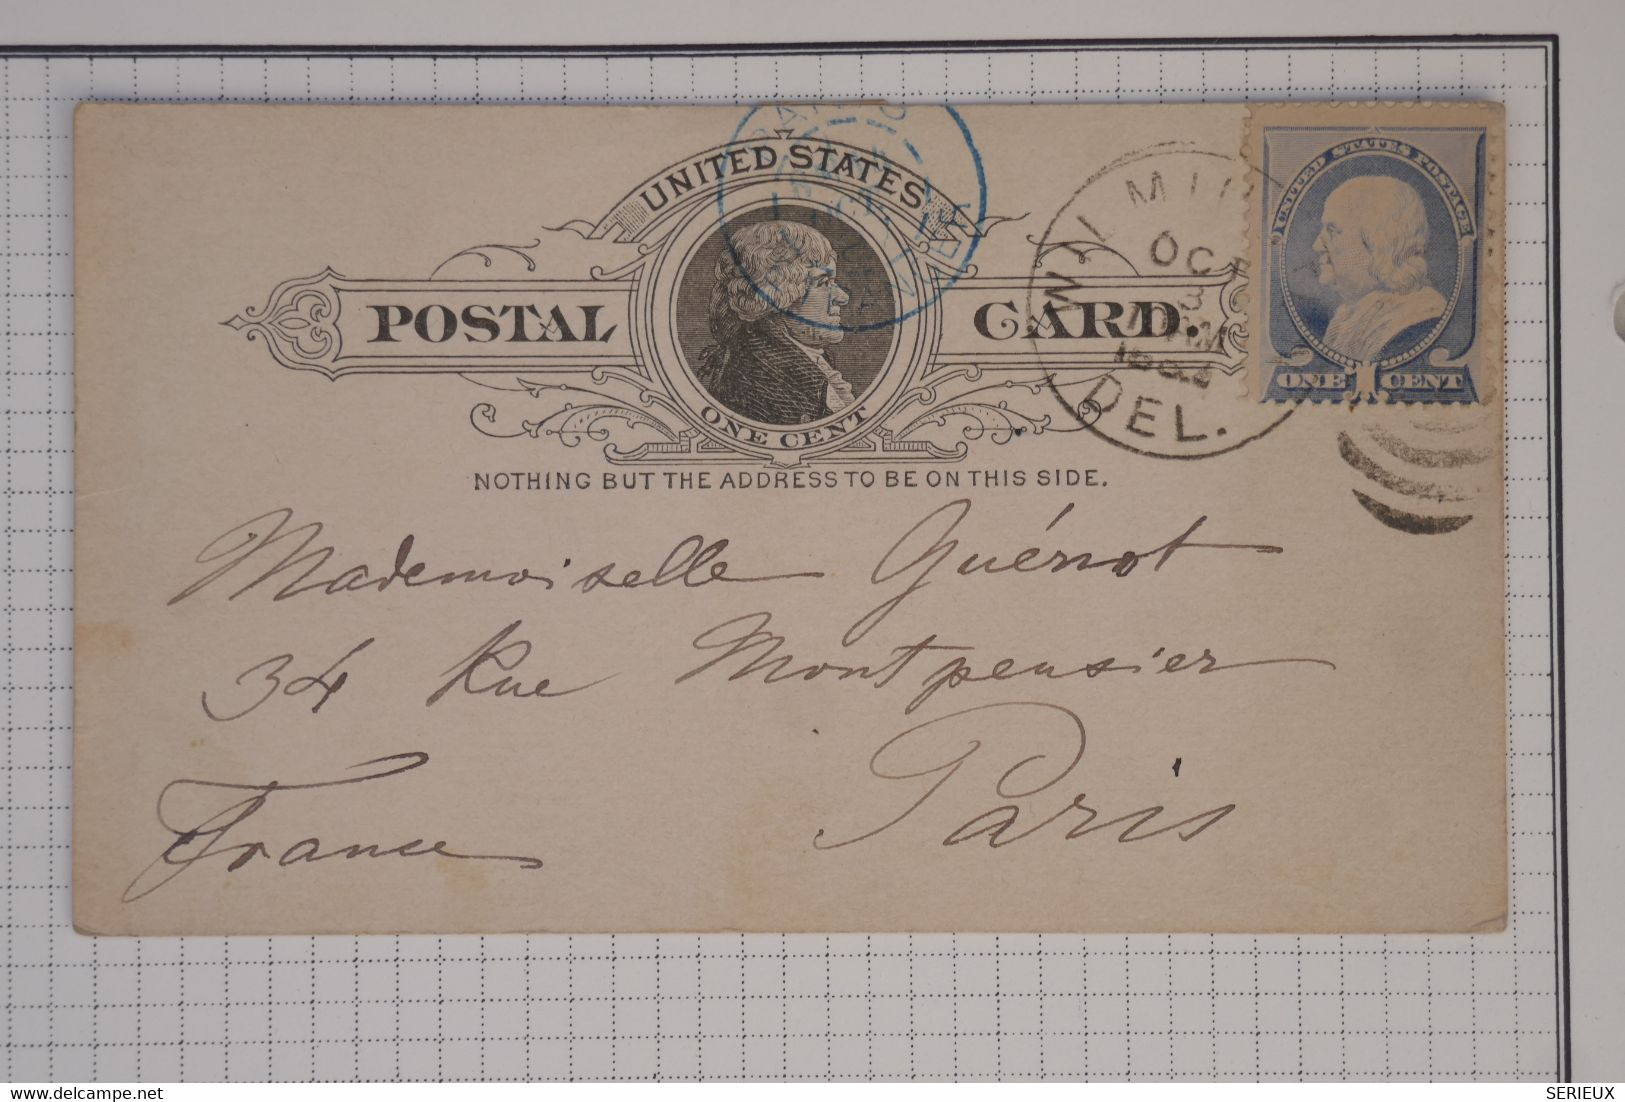 UNITED STATES
POSTAL CARD.
ONE CENT
NOTHING BUT THE ADDRESS TO BE ON THIS SIDE.
OCT
3
DEL.
UNITED STATES POSTAGE
ONE 1 CENT
Mademoiselle Guénot
34 Rue Montpensier
Paris
France
delcampe.net
SERIEUX